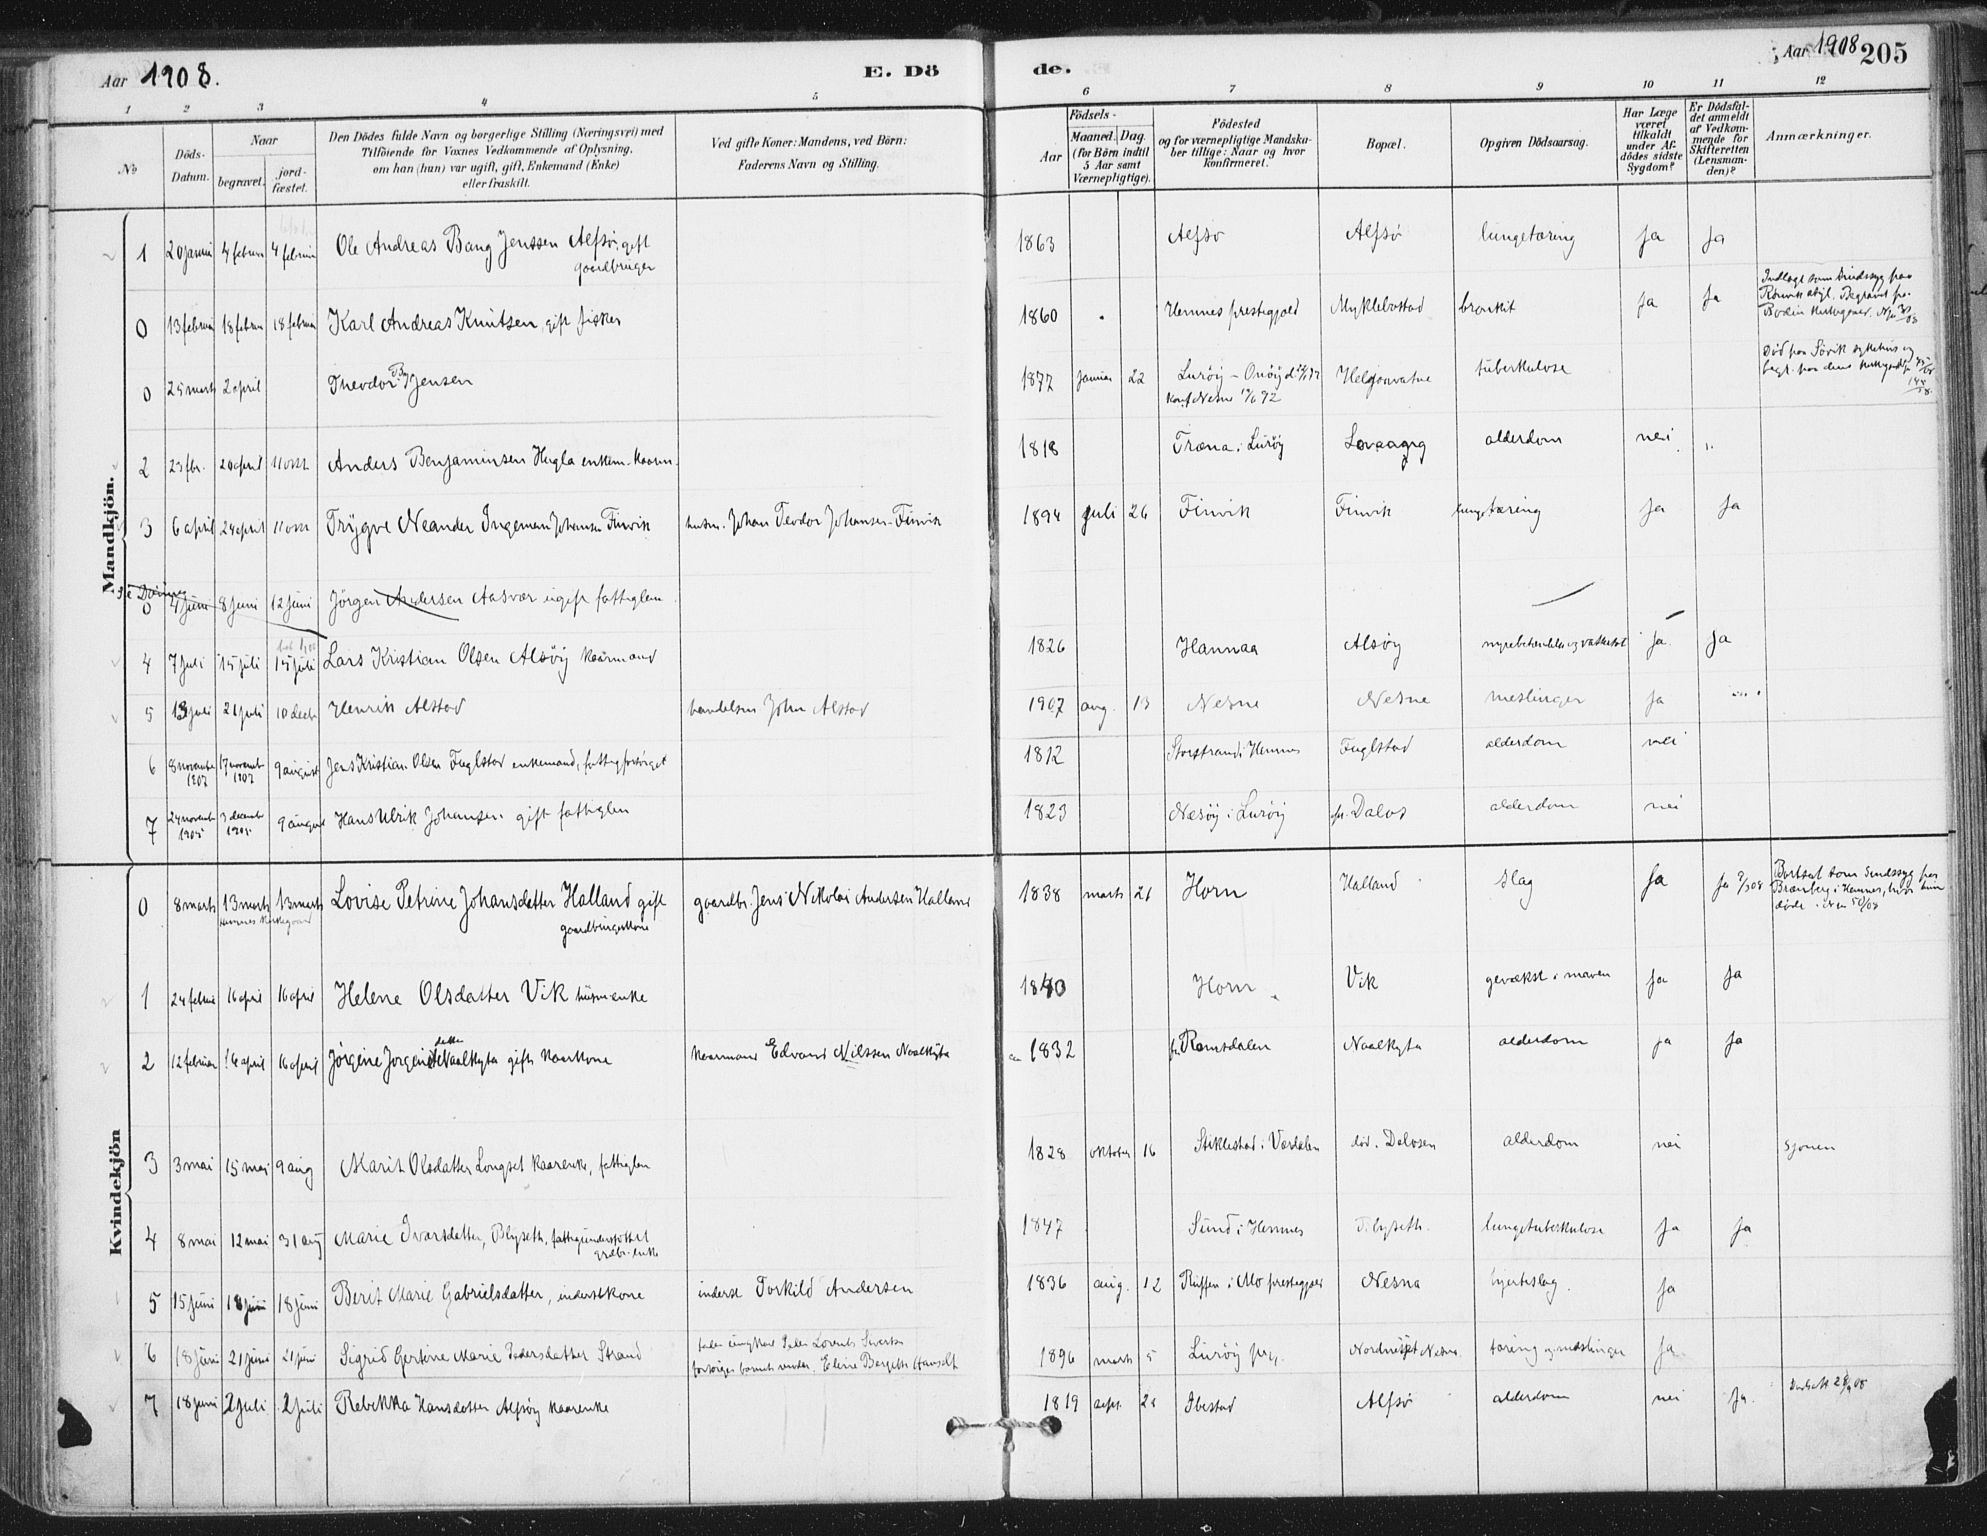 Aar 1908. E. Dö de. Aar 1908 205
1 2 3 4 5 6 7 8 9 10 11 12
No
Döds-Datum.
Naar
begravet.
jord-fæstet.
Den Dödes fulde Navn og borgerlige Stilling (Næringsvei) med
Tilföiende for Voxnes Vedkommende af Oplysning,
om han (hun) var ugift, gift, Enkemand (Enke)
eller fraskilt.
Ved gifte Koner: Mandens, ved Börn:
Faderens Navn og Stilling.
Födsels-
Aar
Maaned. Dag.
(for Börn indtil
5 Aar samt
Værnepligtige).
Födested
og for værnepligtige Mandska-
ber tillige: Naar og hvor
konfirmeret.
Bopæl.
Opgiven Dödsaarsag.
Har Læge
været
tilkaldt
under Af-
dödes sidste
Sygdom?
Er Dödsfal-
det anmeldt
af Vedkom-
mende for
Skifteretten
(Lensman-
den)?
Anmærkninger.
Mandkjön.
1 20 januar 4 februar 4 februar Ole Andreas Bang Jenssen Alfsö, gift 1863 Alfsö Alfsö lungetæring ja ja
gaardbruger
0 13 februar 18 februar 18 februar Karl Andreas Knutsen, gift fisker 1860 Hemnes prestegjæld Myklebostad bronkit ja ja Indlagt som sindssyg paa
Rönvik asyl. Begravet fra
Bodin
0 25 marts 2 april Theodor B. Jensen 1877 januar 22 Luröy - Onöy Helgaavatne tuberkulose Död paa Sövik sykehus og
konf. Nesne begr. paa dens
2 23 fbr. 20 april 11 okt Anders Benjaminsen Hugla enkem. kaarm. 1818 Træna i Luröy Lovaageg alderdom nei "
3 6 april 24 april 11 okt Trygve Neander Ingeman Johansen Finvik husm. Johan Teodor Johansen Finvik 1894 juli 26 Finvik Finvik lungetæring ja ja
0 4 juni 8 juni 12 juni Jörgen Andersen Aasvær ugift fattiglem
4 7 juli 15 juli 15 juli Lars Kristian Olsen Alsöy kaarmand 1826 Hannaa Alsöy nyrebetændelse og vattersot ja ja
5 13 juli 21 juli 10 decbr Henrik Alstad handelsm John Alstad 1907 aug. 13 Nesne Nesne meslinger ja
6 8 novembr 1907 17 novembr 1907 9 august Jens Kristian Olsen Fuglstad enkemand, fattigforsörget 1812 Storstrand i Hemnes Fuglstad alderdom nei
7 24 novembr 1905 3 decembr 1905 9 august Hans Ulrik Johansen gift fattiglem 1823 Næsöy i Luröy Dalos alderdom nei
Kvindekjön
0 8 marts 13 marts 13 marts Lovise Petrine Johansdatter Halland gift gaardbr. Jens Nikolai Andersen Halland 1838 marts 21 Horn Halland slag ja ja Bortsat som sindssyg paa
Hemnes Kirkegaard gaardbrugerkone Brænberg i Hemnes, hvor hun
döde
1 24 februar 16 april 16 april Helene Olsdatter Vik husm.enke 1840 Horn Vik gevækst i maven ja ja
2 12 februar 16 april 16 april Jörgine Jörgensdatter Naalkyta gift kaarkone kaarmand Edvard Nilssen Naalkyta ca 1832 fr. Ramsdalen Naalkyta alderdom ja ja
3 3 mai 15 mai 9 aug Marit Olsdatter Longset kaarenke, fattiglem 1828 oktober 16 Stiklestad i Værdalen död. Dalosen alderdom nei Sjonen
4 8 mai 12 mai 31 aug Marie Ivarsdatter, Blyseth, fattigunderstöttet 1847 Sund i Hemnes Blyseth. lungetuberkulose ja ja
grdbr.enke
5 15 juni 18 juni 18 juni Berit Marie Gabrielsdatter, inderstkone inderst Torkild Andersen 1836 aug. 12 Ruffen i Mo prestegjæld Nesna hjerteslag. ja
6 18 juni 21 juni 21 juni Sigrid Gertine Marie Pedersdatter Strand fader ungkar Peder Lorents Sivertsen 1896 marts 5 Luröy prg. Nordneset Nesne. tæring og meslinger ja
barnets moder Eline Bergette Hansdt
7 18 juni 2 juli 2 juli Rebekka Hansdatter Alfsöy kaarenke 1819 sept. 21 Ibestad Alfsö alderdom nei ja